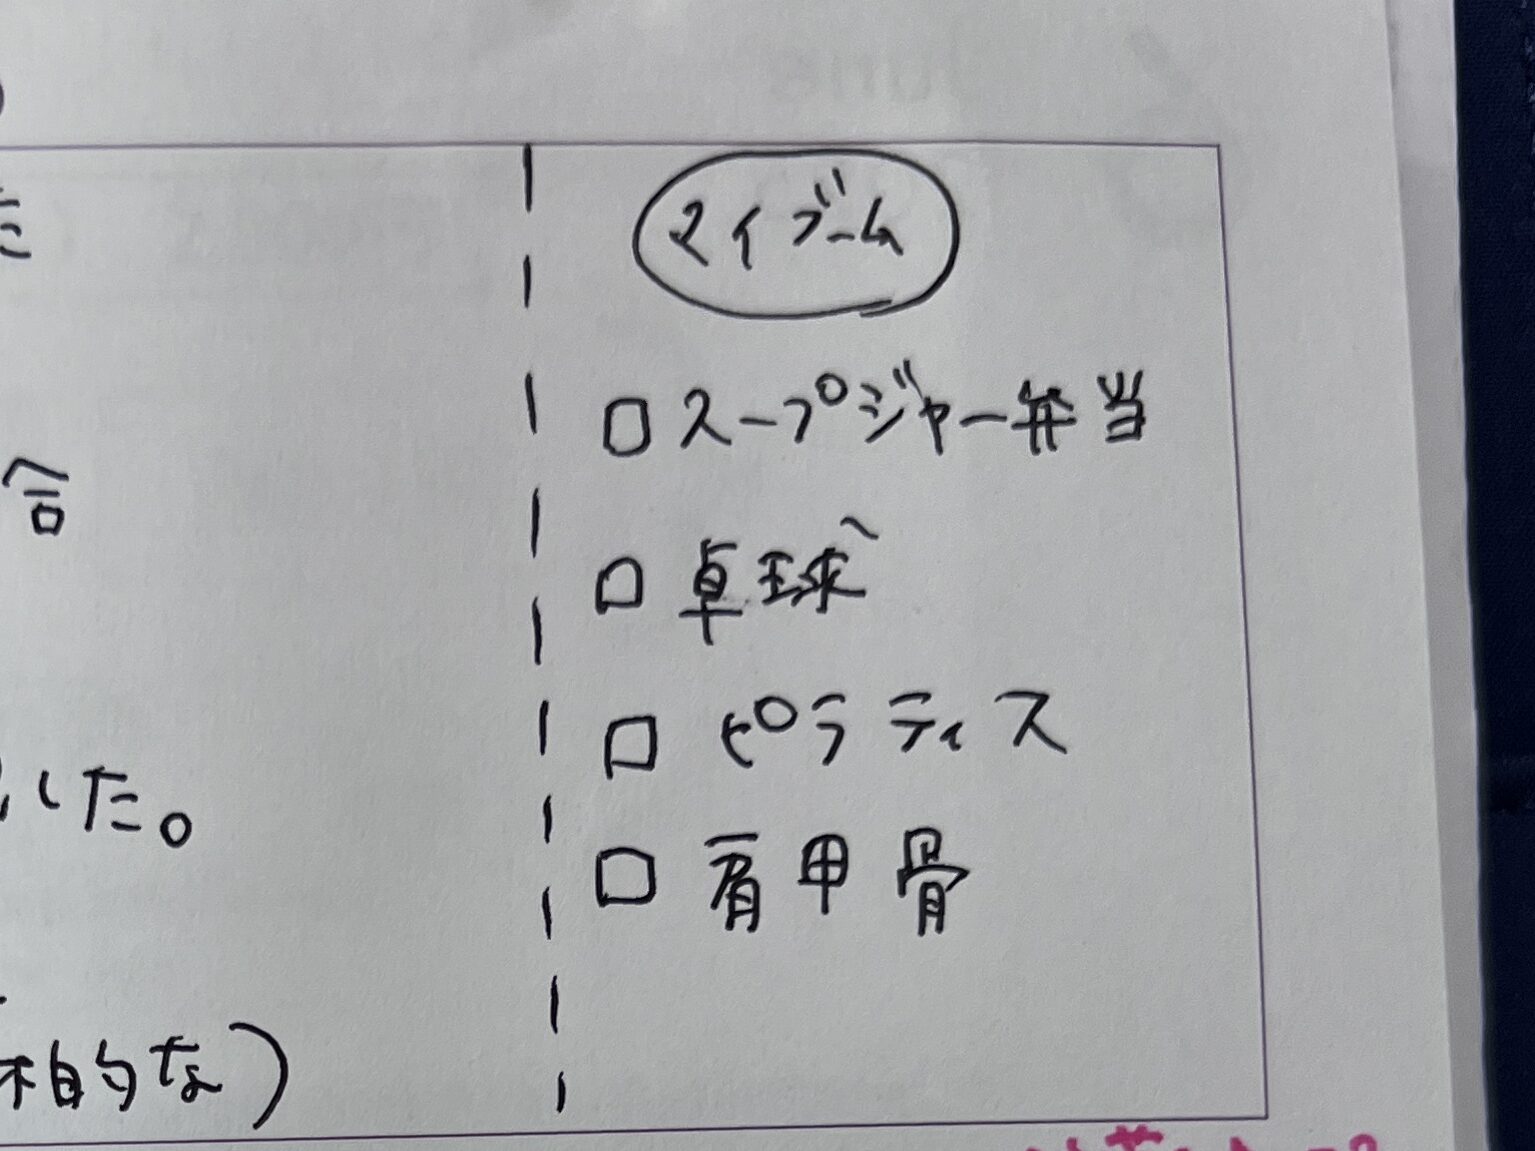 マイブーム
□ スープジャー弁当
□ 卓球
□ ピラティス
□ 肩甲骨
た
合
した。
的な)